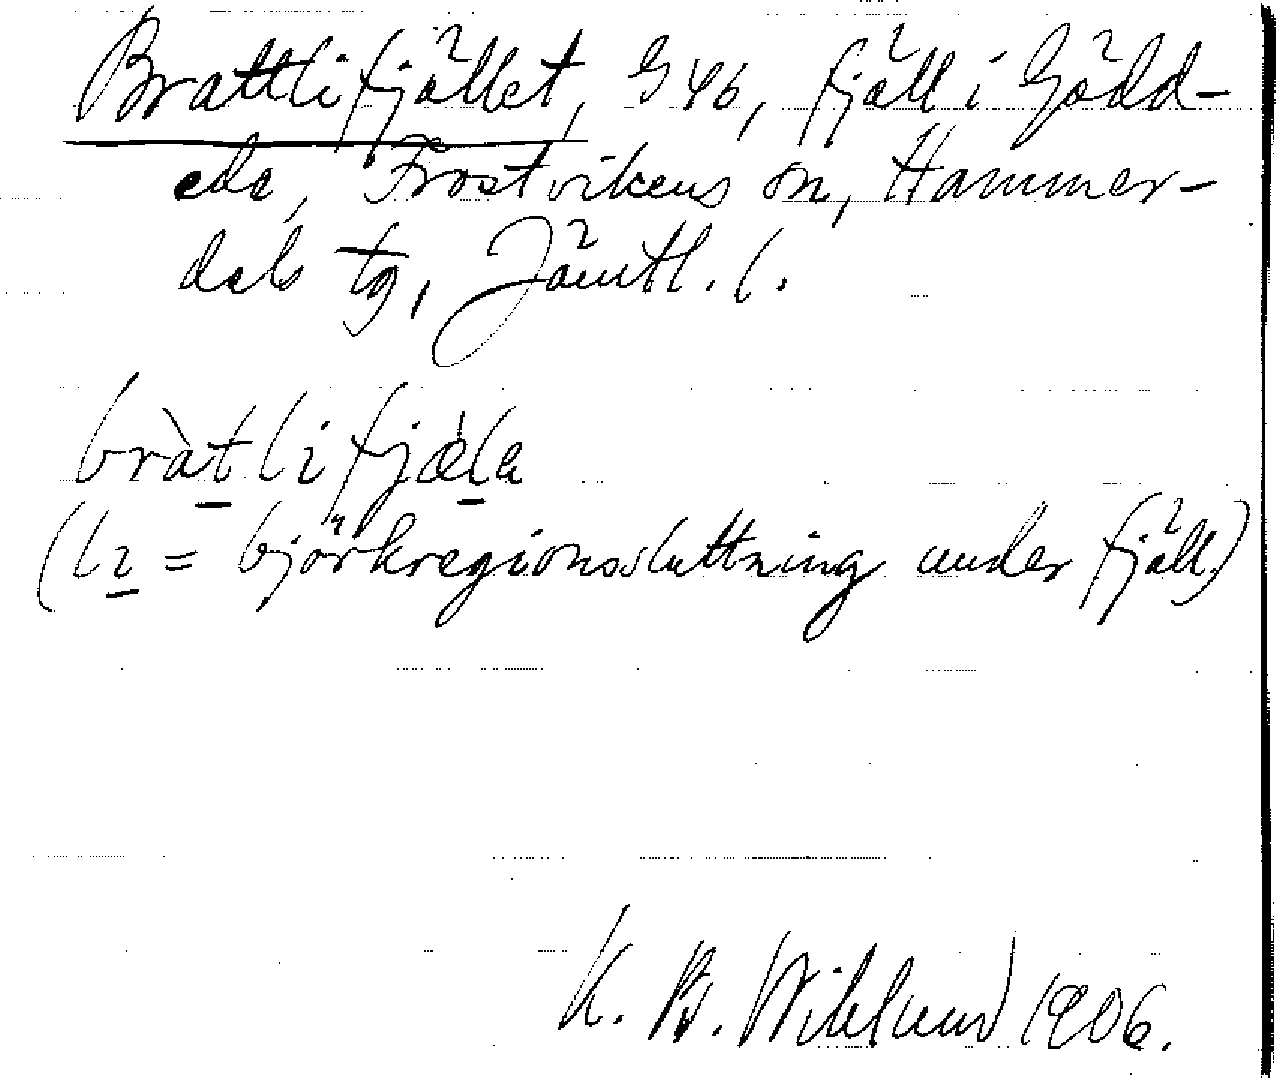 Brattlifjället, G 46, fjäll i Gädd-
ede, Frostvikens sn, Hammer-
dals tg, Jämtl. l.
bràtlifjæ̀la
(li = björkregionssluttning under fjäll.)
K. B. Wiklund 1906.